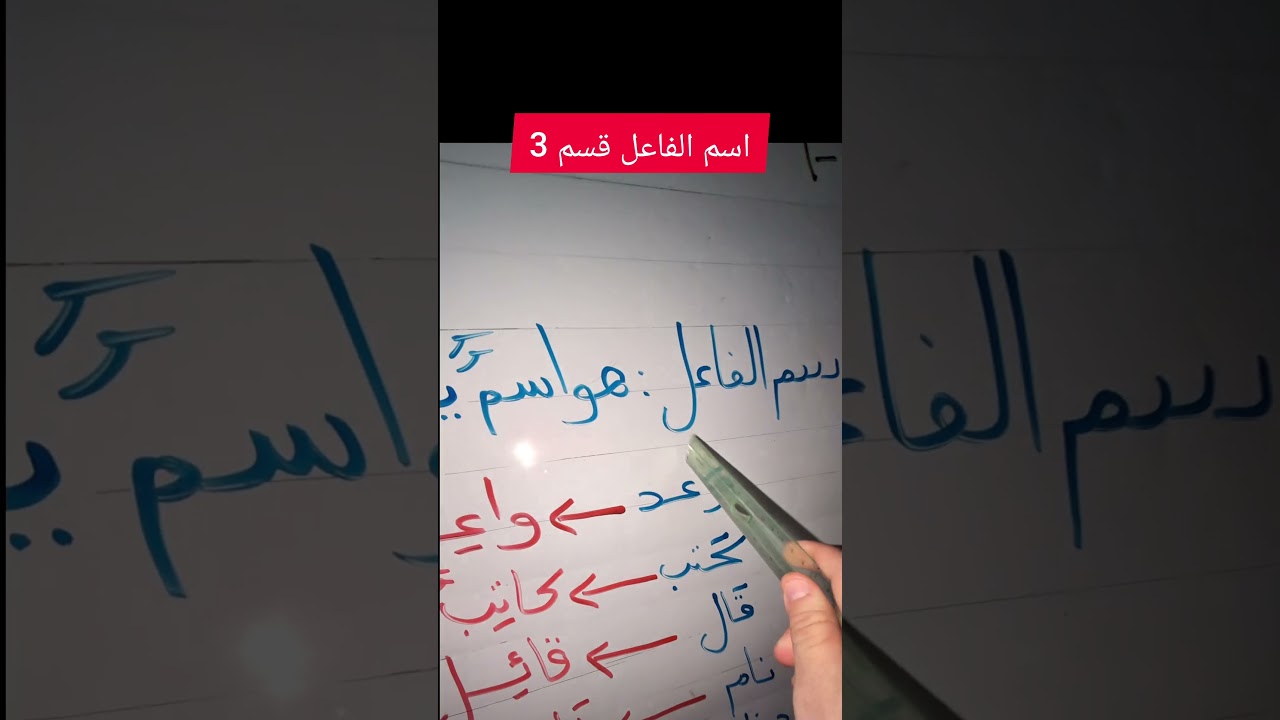 اسم الفاعل قسم 3
اسم الفاعل : هو اسم
وعد ← واعِـ
كَتب ← كاتِب
قَال ← قائِل
نام ←